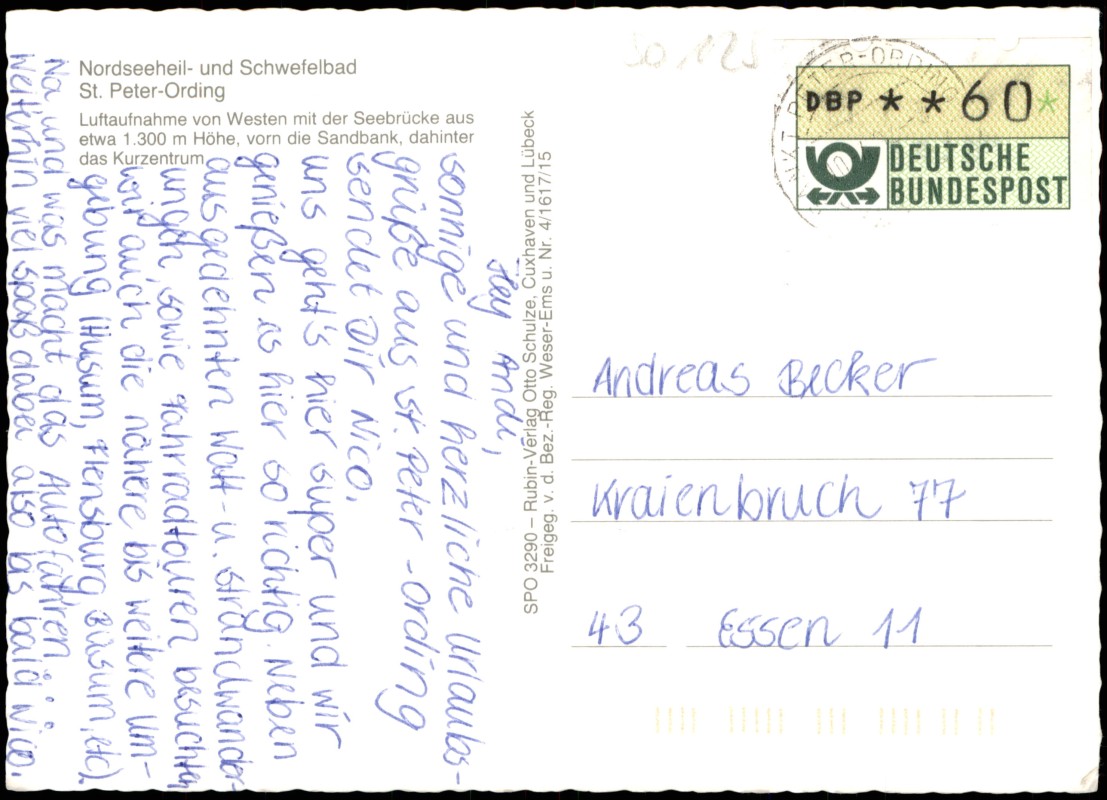 Nordseeheil- und Schwefelbad
St. Peter-Ording
Luftaufnahme von Westen mit der Seebrücke aus
etwa 1.300 m Höhe, vorn die Sandbank, dahinter
das Kurzentrum
Hey Andi,
sonnige und herzliche Urlaubs-
grüße aus St. Peter-Ording
sendet Dir Nico.
Uns geht's hier super und wir
genießen es hier so richtig. Neben
ausgedehnten Watt- u. Strandwander-
ungen, sowie Fahrradtouren besuchten
wir auch die nähere bis weitere Um-
gebung (Husum, Flensburg, Büsum, etc).
Na und was macht das Autofahren
weiterhin viel spaß dabei also bis bald Nico.
SPO 3290 – Rubin-Verlag Otto Schulze, Cuxhaven und Lübeck
Freigeg. v. d. Bez.-Reg. Weser-Ems u. Nr. 4/1617/15
DBP * * 60*
DEUTSCHE
BUNDESPOST
PETER-ORDIN
Andreas Becker
Kraienbruch 77
43 Essen 11